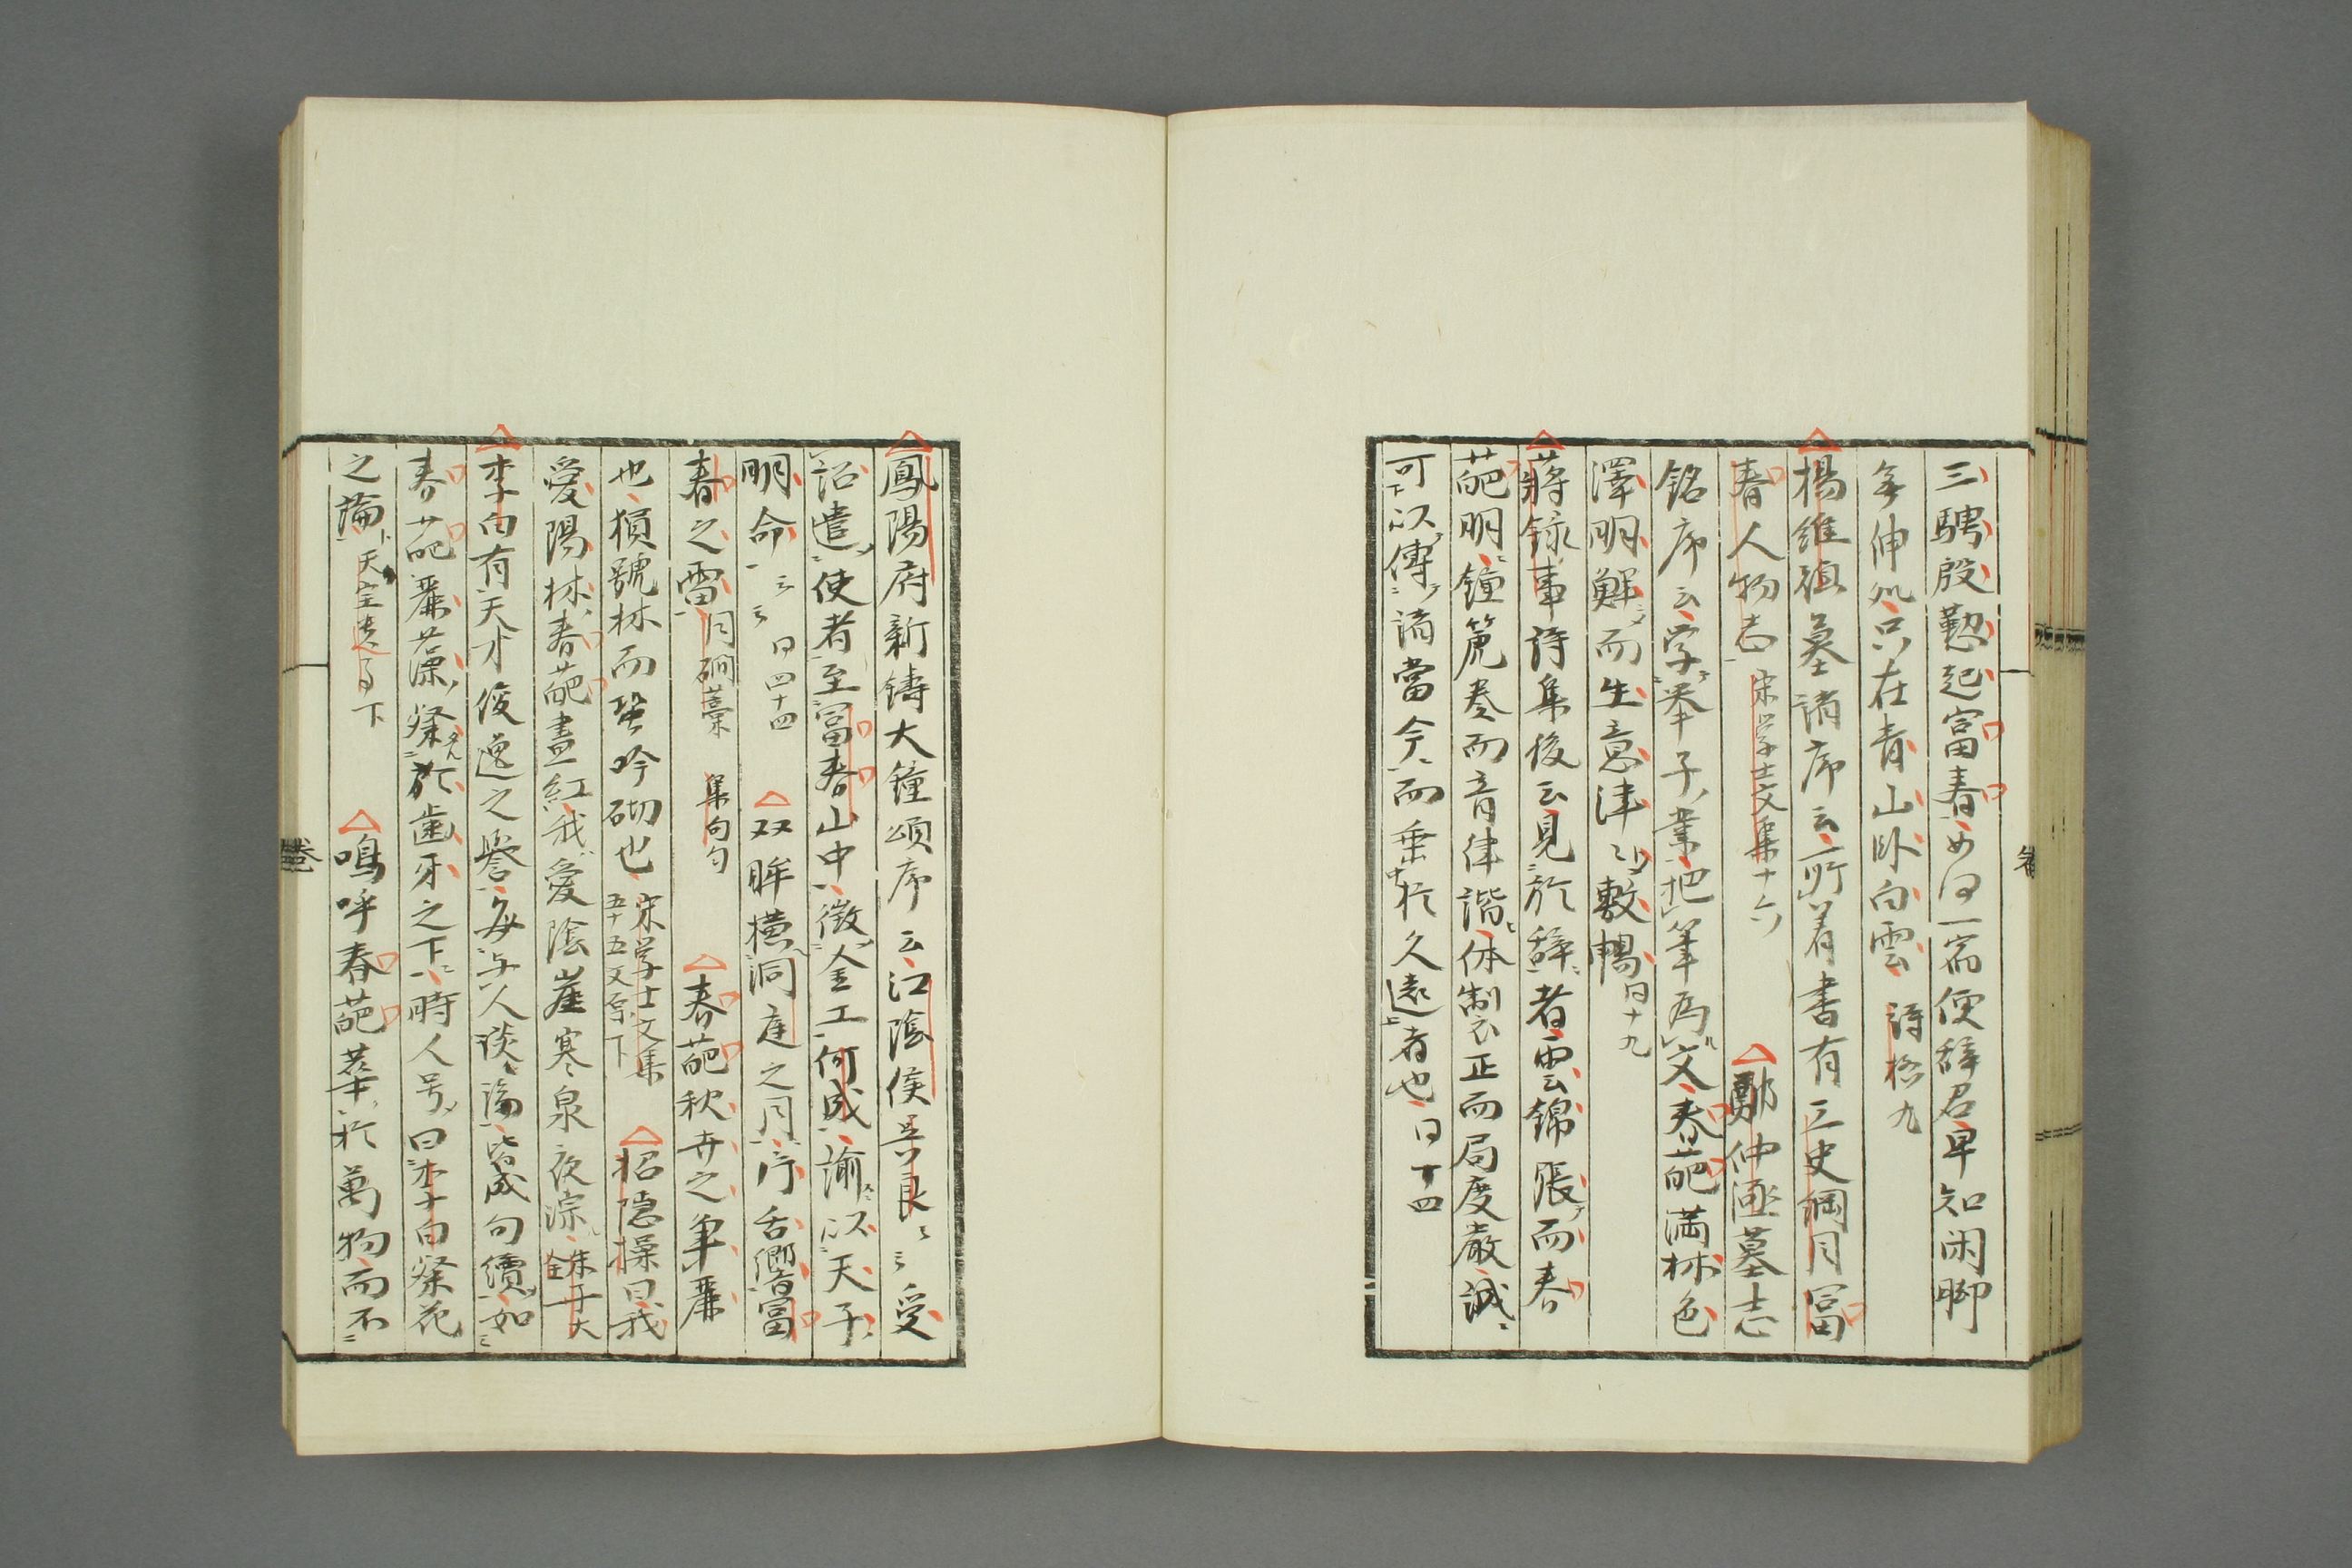 三聘殷懃起富春如何一宿便辞君早知闲脚
無伸処只在青山臥白雲 詩格九
楊維禎墓誌序云所着書有三史綱目冨
春人物志 宋学士文集十六 鄭仲涵墓志
銘序云学挙子業把筆為文春葩満林色
澤明鮮而生意津々敷暢 同十九
蔣録事詩集後云見於辞者雲錦張而春
葩明鐘簴奏而音律諧体制正而局度嚴誠
可以傳誦當今而垂於久遠者也 同丁四
鳳陽府新鋳大鐘頌序云江陰侯呉良云云受
詔遣使者至冨春山中徴金工何成諭以天子
明命云云 同四十四 双眸横洞庭之月片舌響富
春之雷 月磵藁 集句句 春葩秋卉之争麗
也猿號林而蛩吟砌也 宋学士文集五十五文原下 招隠操曰我
愛陽林春葩晝紅我愛陰崖寒泉夜淙 朱子大全
李白有天才俊逸之譽每与人談論皆成句讀如
春葩麗藻粲於歯牙之下時人号曰李白粲花
之論 天宝遺事下 嗚呼春葩華於萬物而不